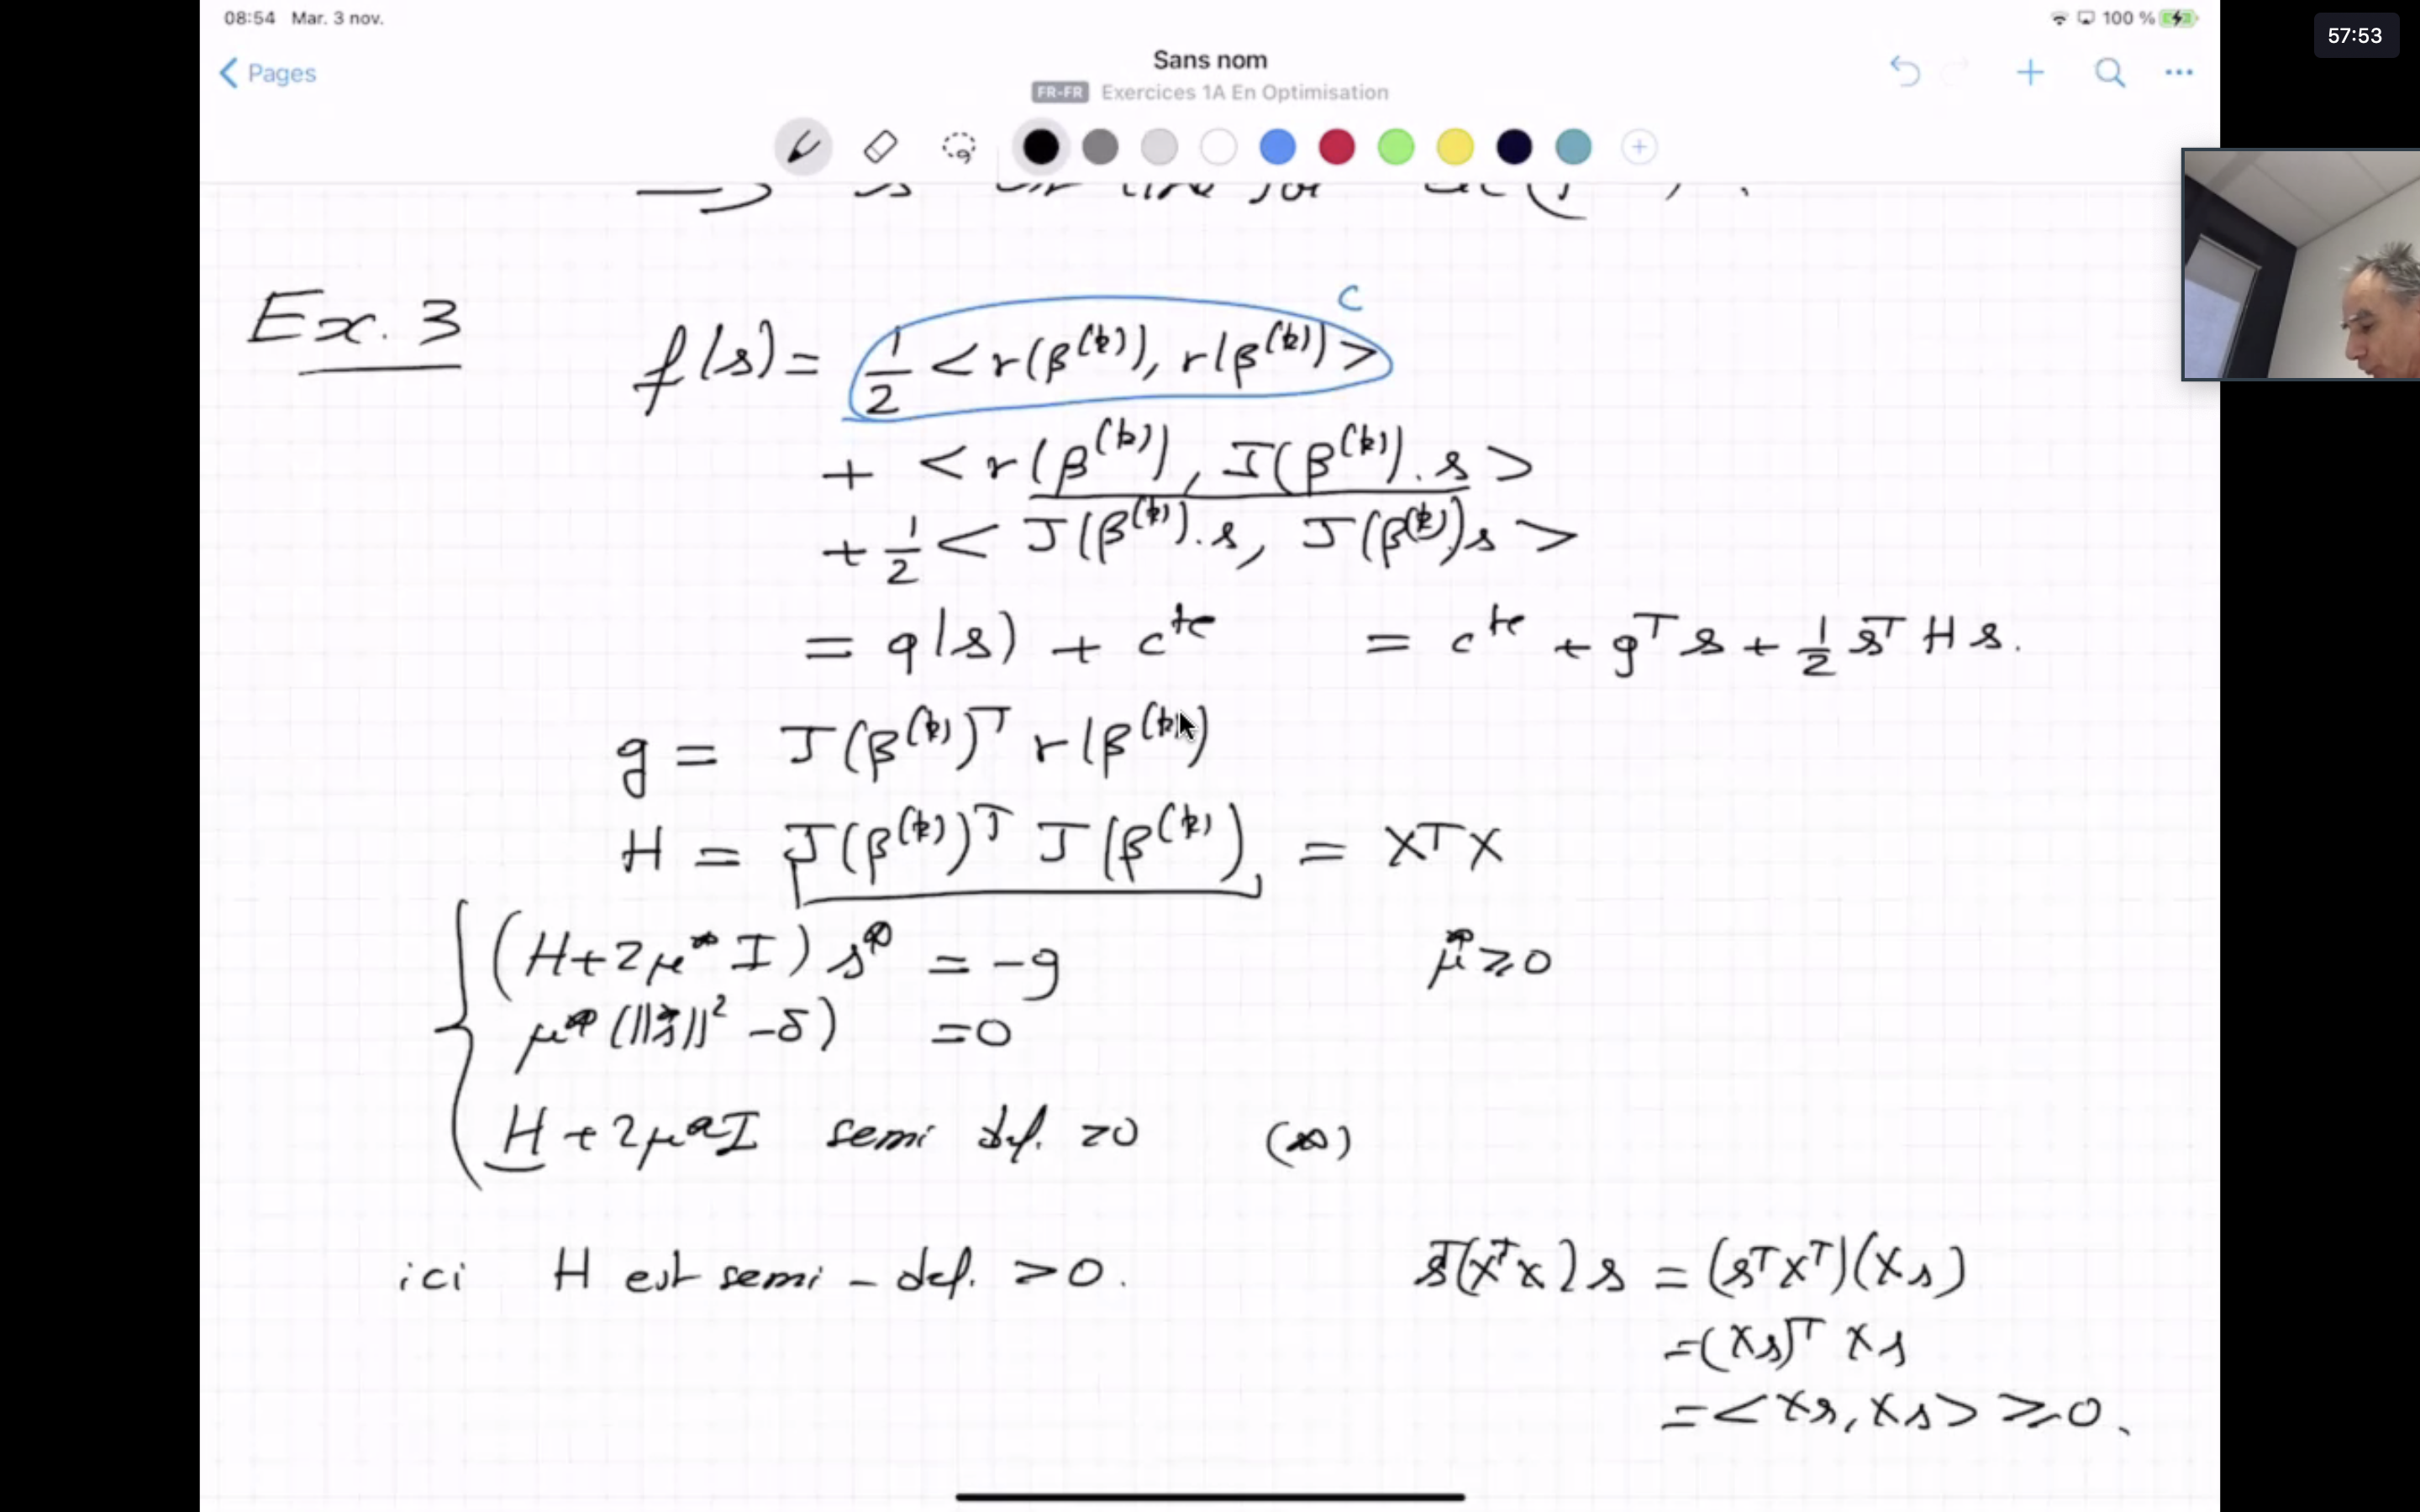 08:54 Mar. 3 nov.
100 %
57:53
Sans nom
Pages
FR-FR Exercices 1A En Optimisation
Ex. 3
c
f(s) = 1/2 < r(β^(k)), r(β^(k)) >
+ < r(β^(k)), J(β^(k)).s >
+ 1/2 < J(β^(k)).s, J(β^(k)).s >
= q(s) + c^te = c^te + g^T s + 1/2 s^T H s.
g = J(β^(k))^T r(β^(k))
H = J(β^(k))^T J(β^(k)) = X^T X
(H+2μ* I) s* = -g μ* ≥ 0
μ* (||s*||² - δ) = 0
H + 2μ* I semi def. ≥0 (*)
ici H est semi-def. >0. s^T(X^T X)s = (s^T X^T)(Xs)
=(Xs)^T Xs
= <Xs, Xs> ≥ 0.